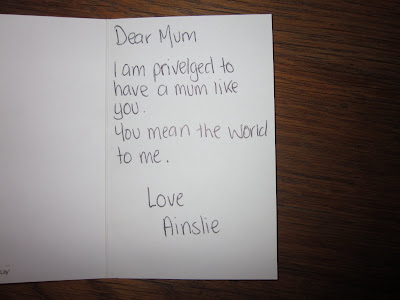 Dear Mum
I am privelged to
have a mum like
you.
You mean the world
to me.
Love
Ainslie